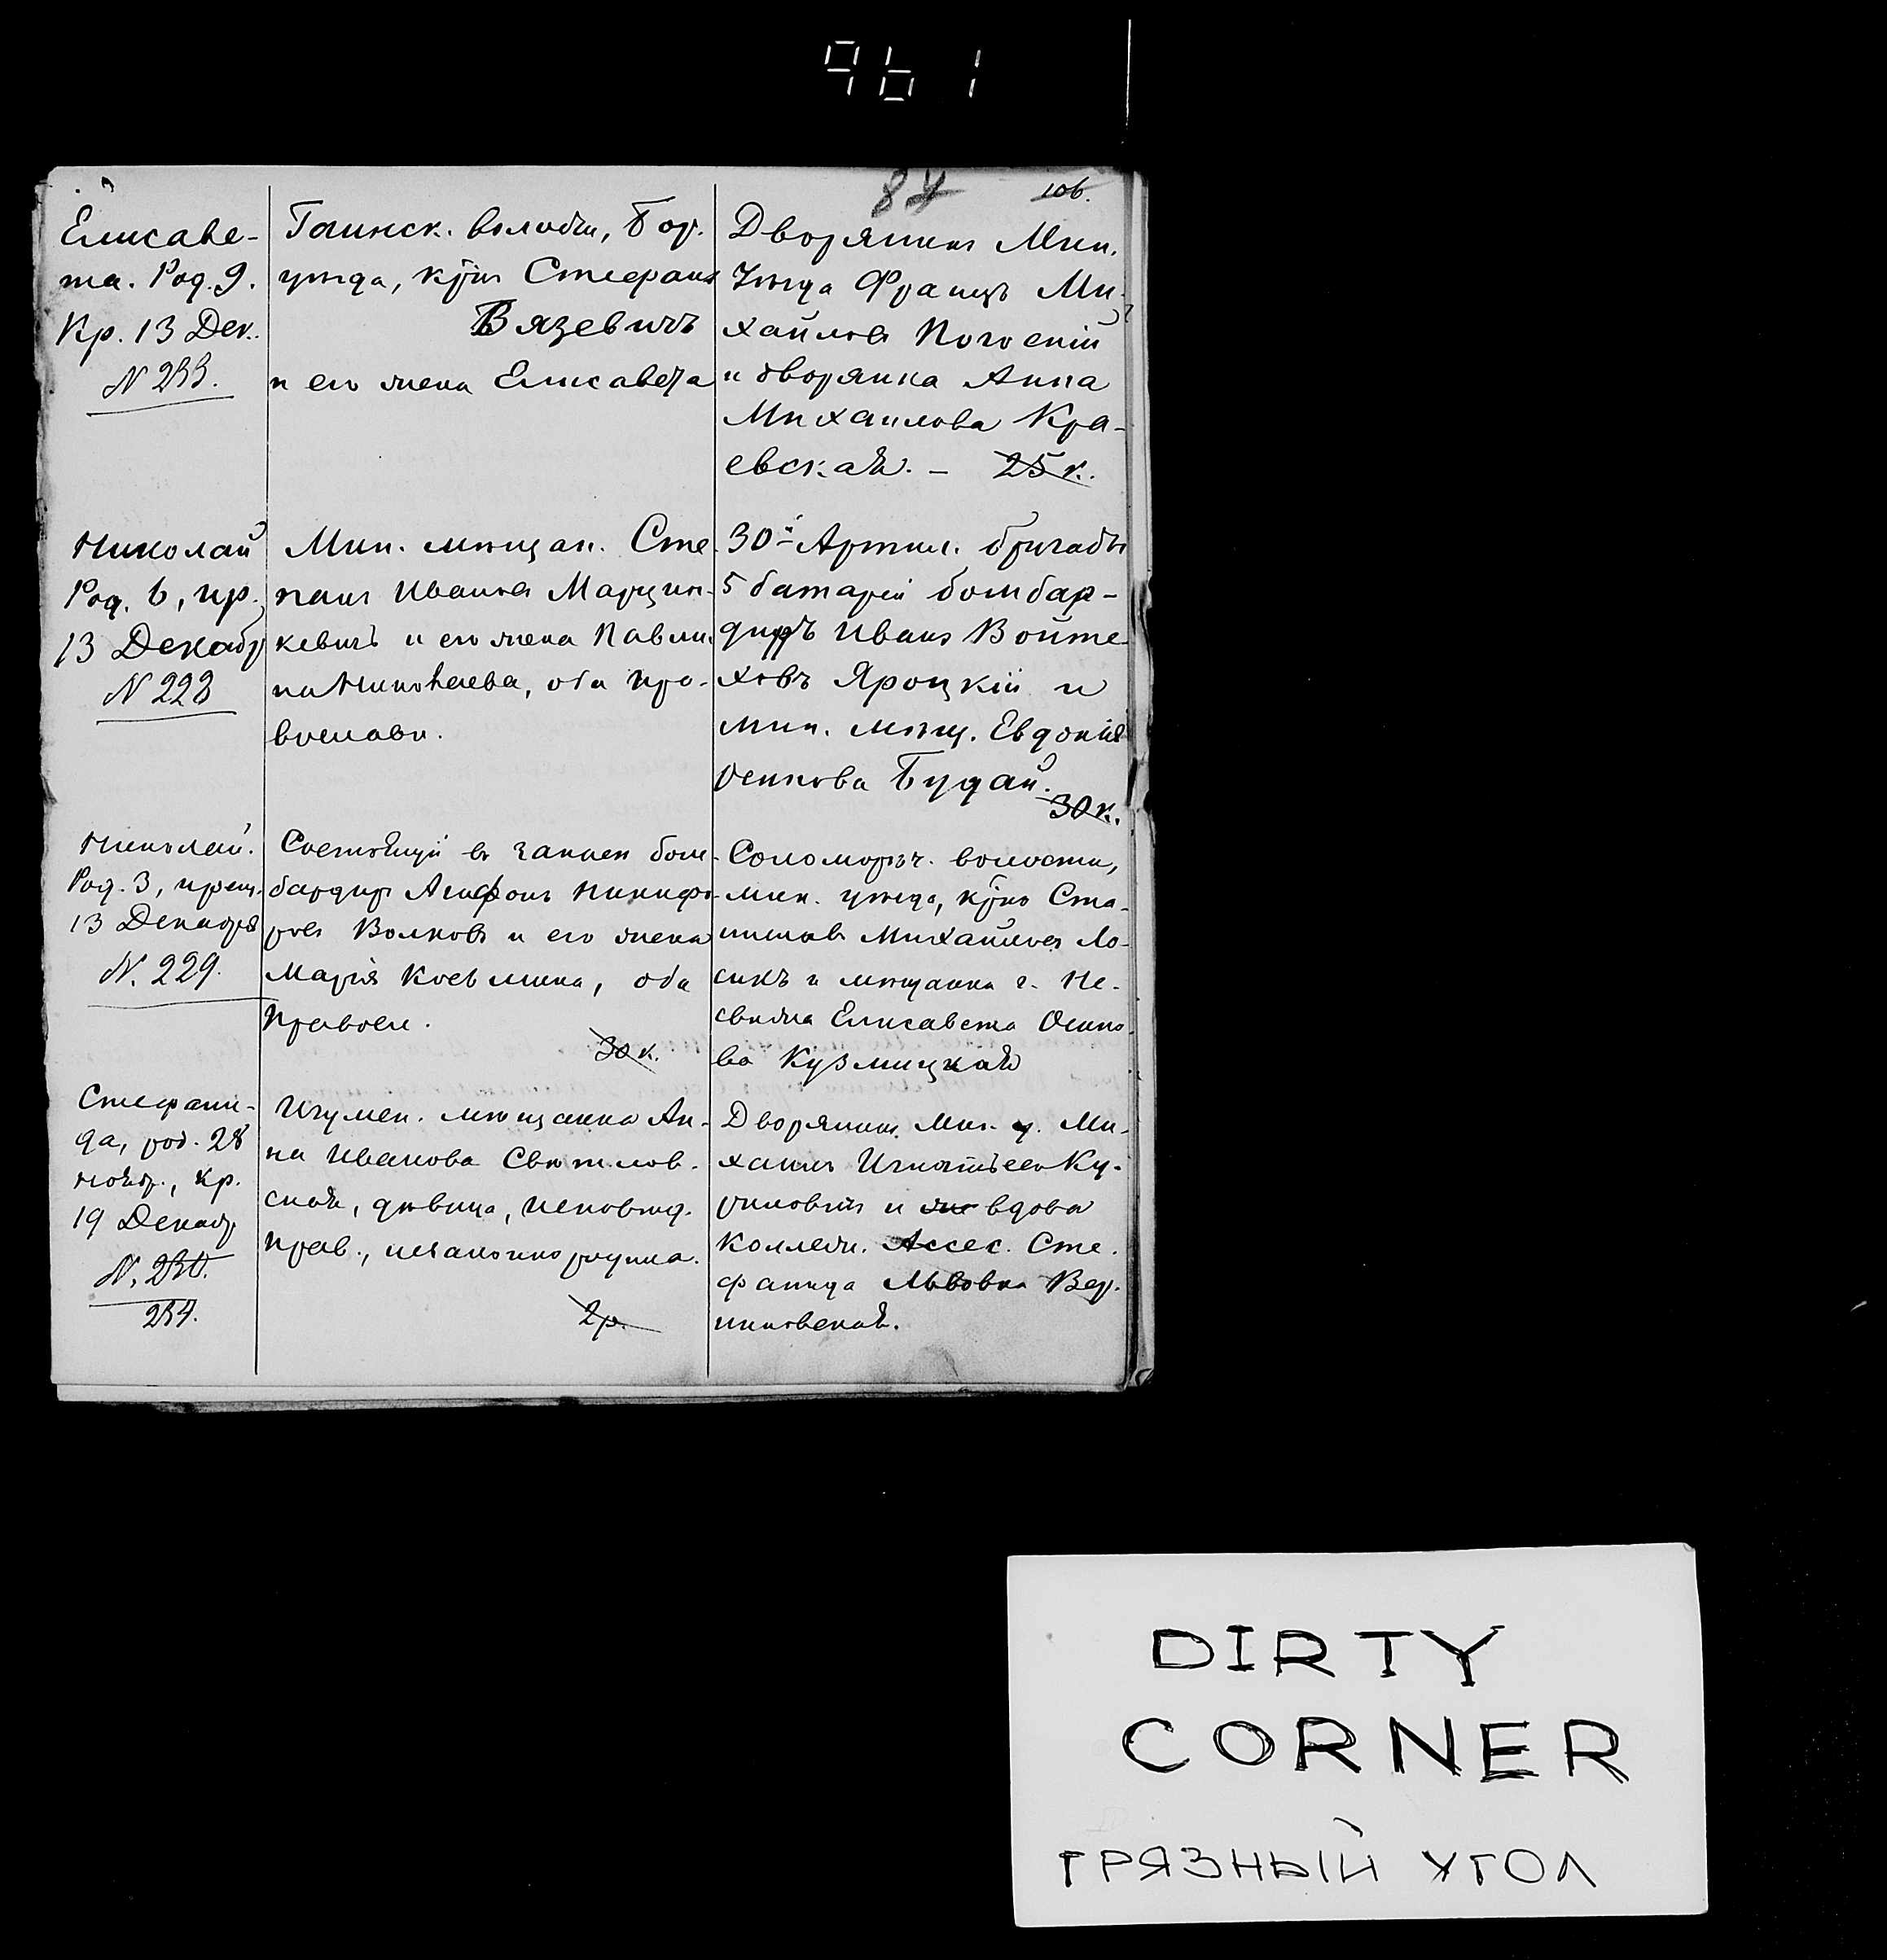 961
87
106.
Елисаве-
та. Род. 9.
Кр. 13 Дек.
N 233.
Гаинск. волости, Бор.
уѣзда, кр͞нъ Стефанъ
Вязевичъ
и его жена Елисавета
Дворянинъ Мин.
Уѣзда Францъ Ми-
хайловъ
и дворянка Анна
Михаилова Кра-
евская. – 25 к.
Николай
Род. 6, кр.
13 Декабр
N 228
Мин. мѣщан. Сте-
панъ Ивановъ Марцин-
кевичъ и его жена Павли-
на Николаева, оба пра-
вославн.
30й Артил. бригады
5 батареи бомбар-
диръ Иванъ Войте-
ховъ Яроцкій и
мин. мѣщ. Евдокія
Осипова Будай.
30 к.
Николай.
Род. 3, крещ.
13 Декабря
N. 229.
Состоящій въ запасѣ бом-
бардиръ Агафонъ Никифо-
ровъ Волковъ и его жена
Марія, оба
Правосл.
30 к.
Соломорѣч. волости,
мин. уѣзда, кр͞нъ Ста-
ниславъ Михайловъ Ло-
сикъ и мѣщанка г. Не-
свижа Елисавета Осипо-
ва Кузмицкая
Стефани-
да, род. 28
Ноябр., кр.
19 Декабр
N. 230.
234.
Игумен. мѣщанка Ан-
на Иванова Свѣтлов-
ская, дѣвица, исповѣд.
Прав., незаконнорожден.
2 р.
Дворянинъ Мин. у. Ми-
хаилъ Игнатьевъ Ку-
риловичъ и вдова
Коллежс. Ассес. Сте-
фанида Львовна Вер-
DIRTY
CORNER
ГРЯЗНЫЙ УГОЛ